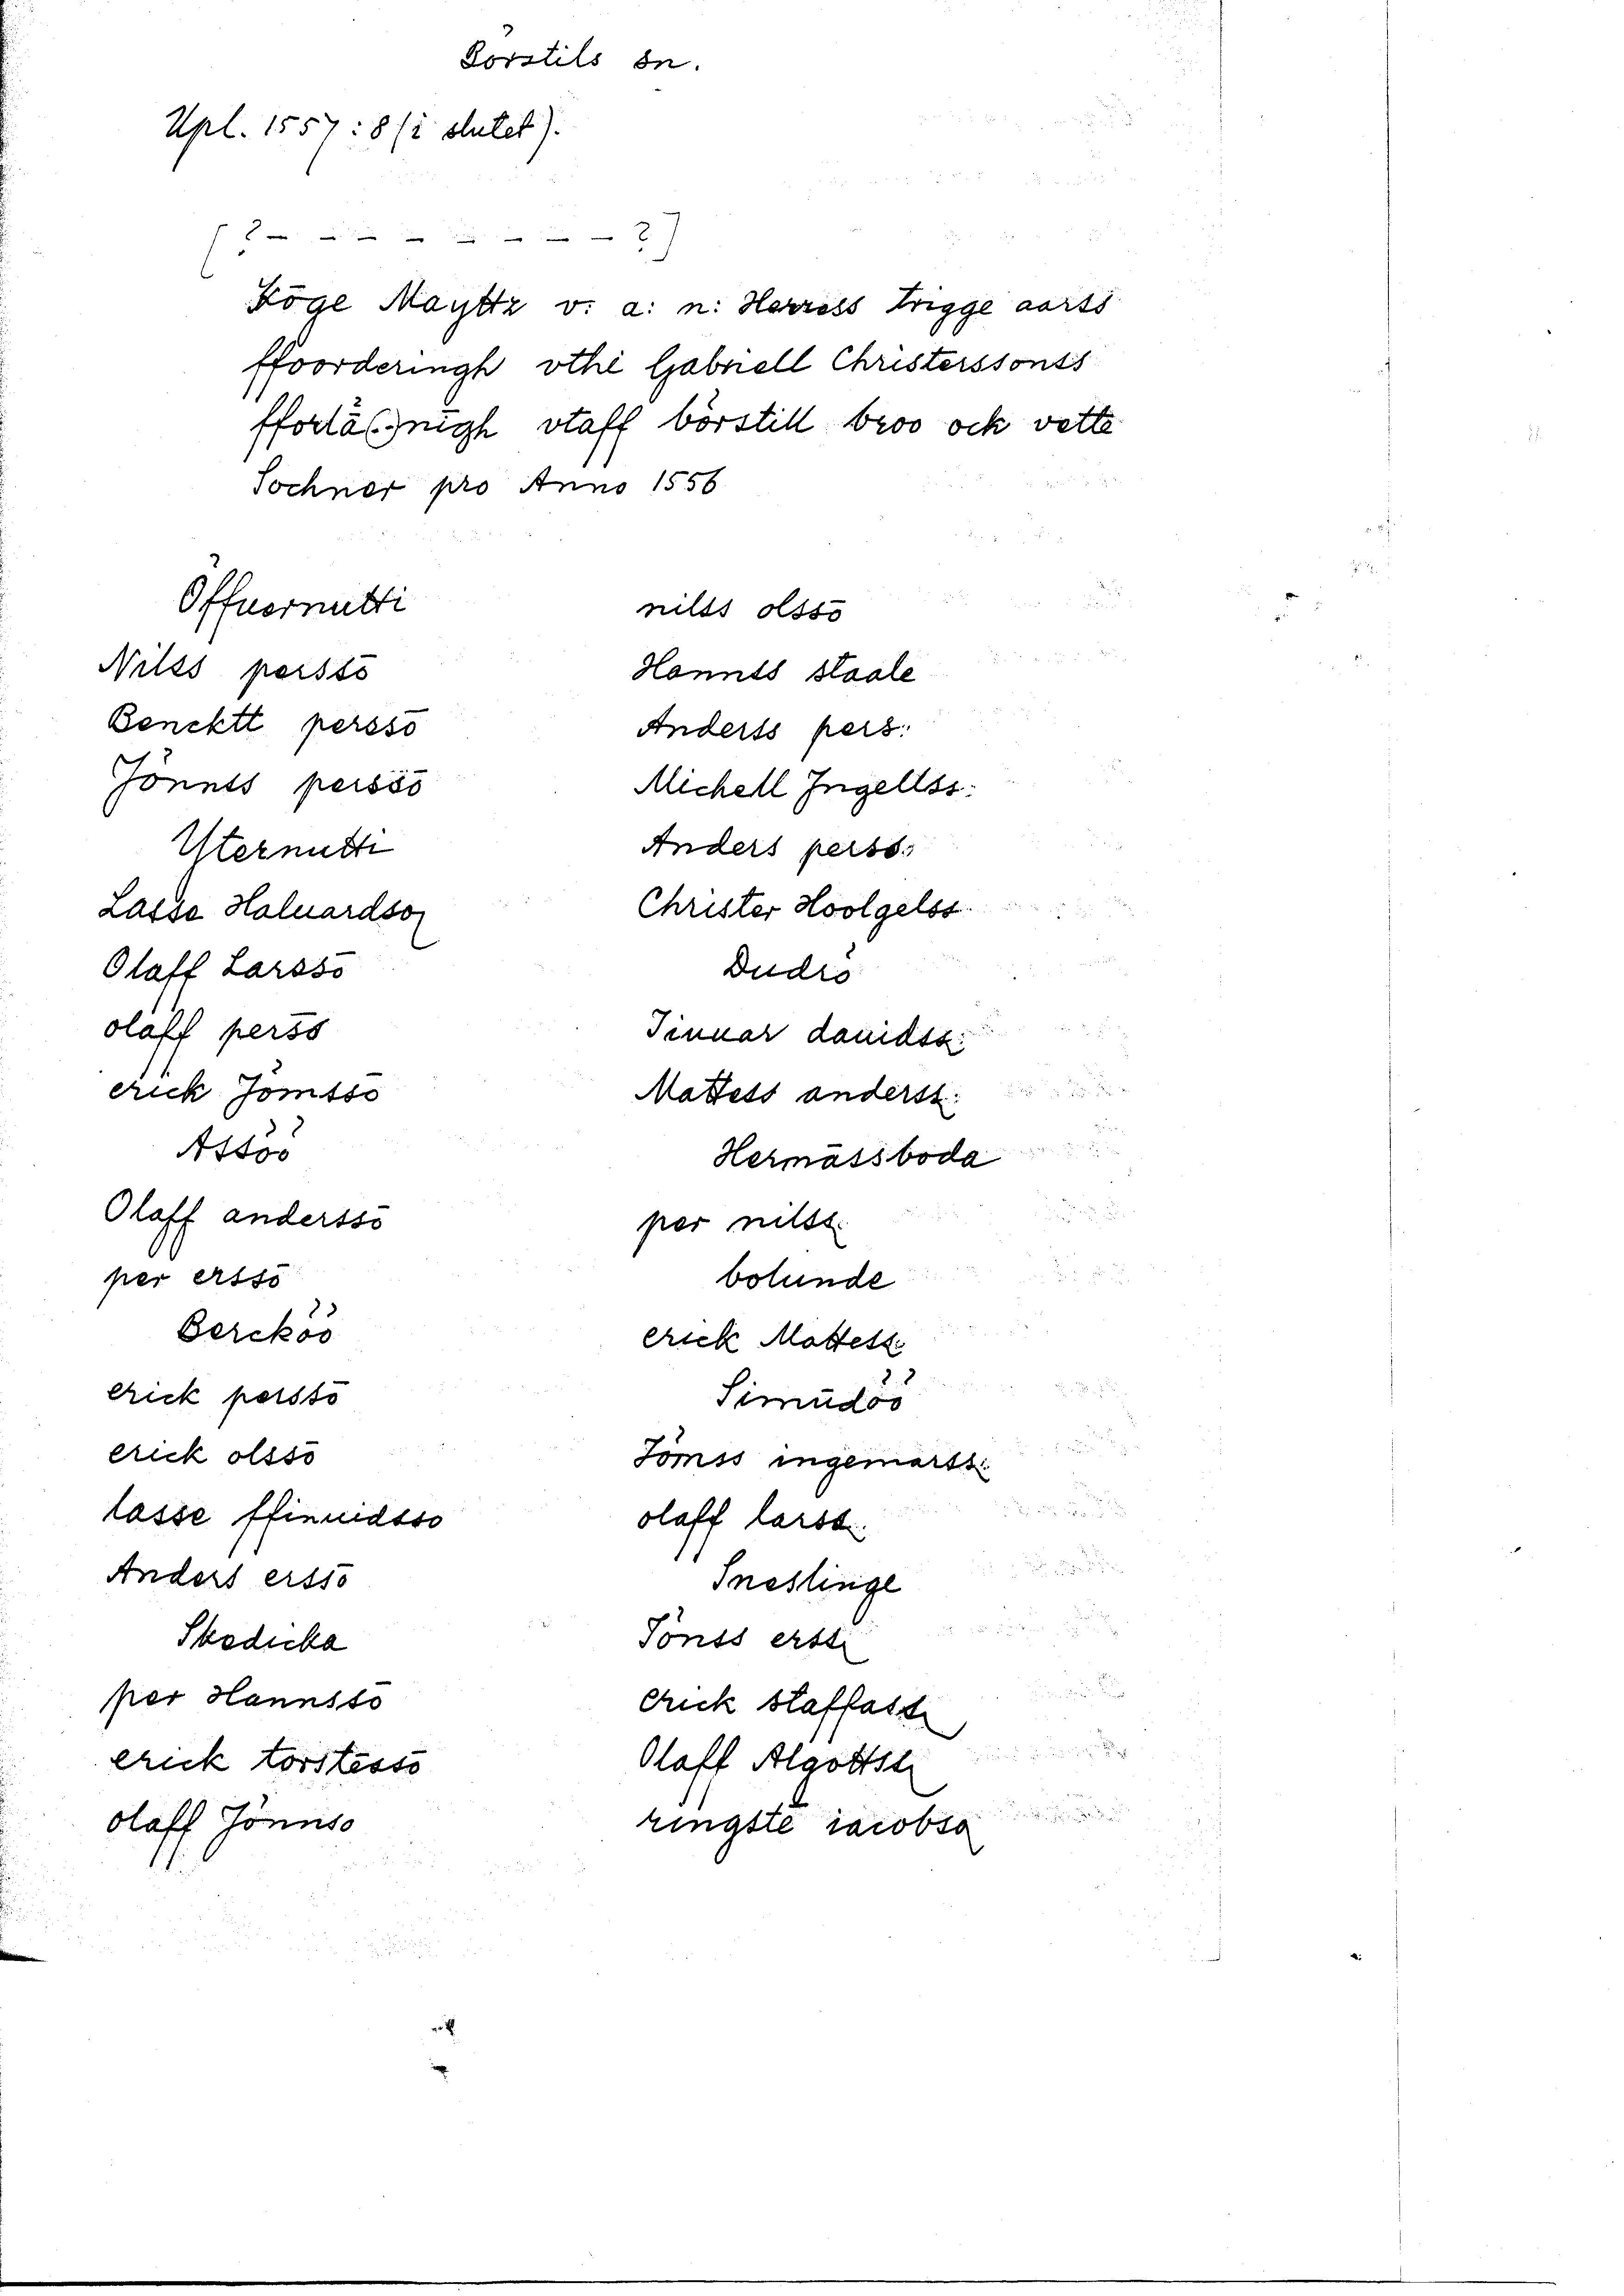 Börstils sn.
Upl. 1557:8 (i slutet).
[?- - - - - - - - ?]
Höge Mayttz v: a: n: Herress trigge aarss
ffoorderingh vthi Gabriell Christerssonss
fforlä(..)nīgh vtaff börstill broo ock vette
Sochner pro Anno 1556
Öffuernutti
Nilss perssō
Bencktt perssō
Jönnss perssō
Yternutti
Lasse Haluardson
Olaff Larssō
olaff perss
erick Jōmssō
Assöö
Olaff anderssō
per erssō
Bercköö
erick perssō
erick olssō
lasse ffinuidsso
Anders erssō
Skedicka
per Hannssō
erick torstēssō
olaff Jönnso
nilss olssō
Hannss staale
Anderss pers:
Michell Ingellss:
Anders perss:
Christer Hoolgelss
Dudrö
Jinuar dauidss:
Mattess anderss:
Hermāssboda
per nilss
bolunde
erick Mattess
Simūdöö
Jōmss ingemarss
olaff larss
Sneslinge
Jönss erss
erick staffass
Olaff Algottss
ringstē iacobso